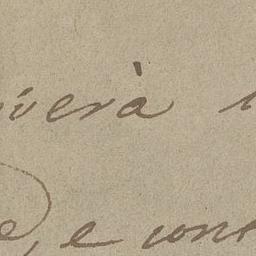 iverà
e, e cont